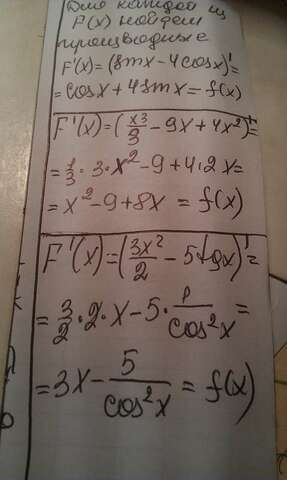 Для каждой из
F(x) найдем
производные
F'(x)=(sinx-4cosx)'=
=cosx+4sinx=f(x)
F'(x)=(x³/3-9x+4x²)'=
=1/3·3·x²-9+4·2x=
=x²-9+8x=f(x)
F'(x)=(3x²/2-5tgx)'=
=3/2·2·x-5·1/cos²x=
=3x-5/cos²x=f(x)